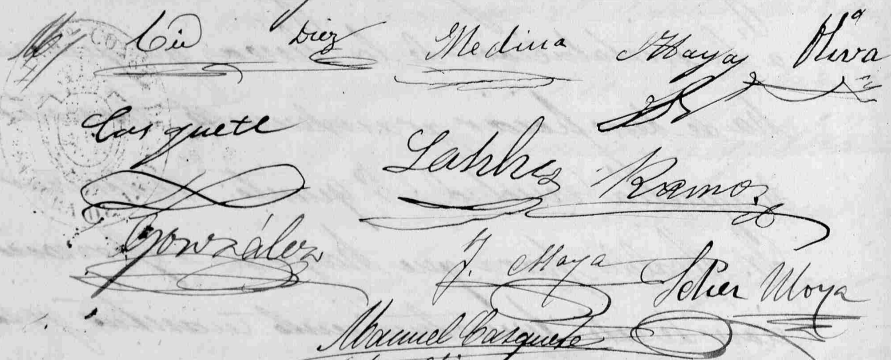 Cid Diez Medina Maya Oliva
Casquete Ramos
González J. Maya Moya
Manuel Casquete